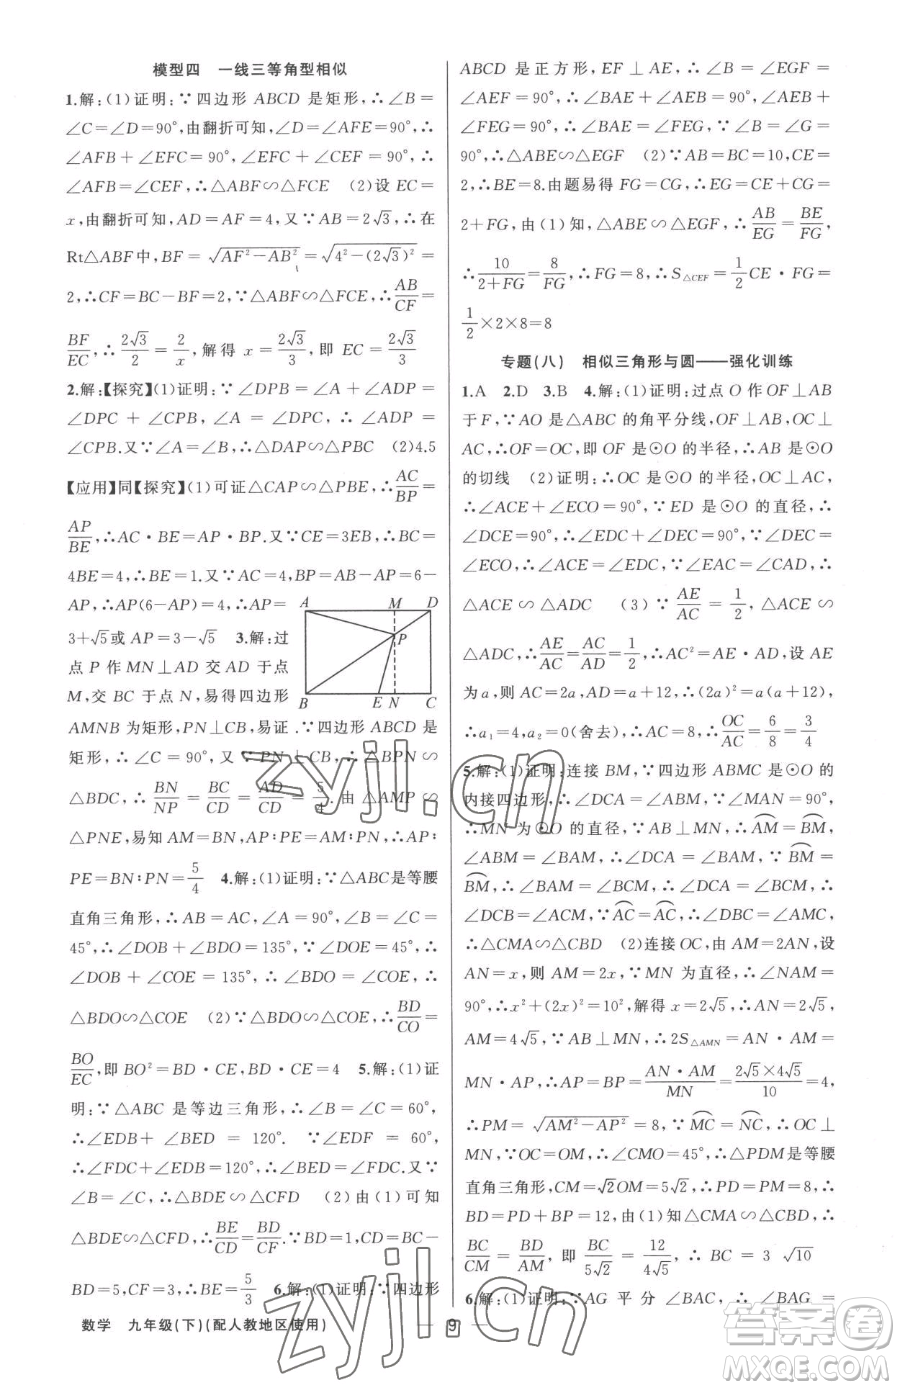 模型四　一线三等角型相似
1.解:(1)证明:∵四边形 ABCD 是矩形,∴∠B=
∠C=∠D=90°,由翻折可知,∠D=∠AFE=90°,∴
∠AFB+∠EFC=90°,∠EFC+∠FEC=90°,∴
∠AFB=∠FEC,∴△ABF∽△FCE　(2)设 EC=
x,由翻折可知,AD=AF=4,又∵AB=2√3,∴在
Rt△ABF中,BF=√(AF²-AB²)=√(4²-(2√3)²)=
2,∴CF=BC-BF=2,∵△ABF∽△FCE,∴AB/CF=
BF/EC,∴2√3/2=2/x,解得 x=2√3/3,即 EC=2√3/3
2.解:【探究】(1)证明:∵∠DPB=∠A+∠ADP=
∠DPC+∠CPB,∠A=∠DPC,∴∠ADP=
∠CPB.又∵∠A=∠B,∴△DAP∽△PBC　(2)4.5
【应用】同【探究】(1)可证△CAP∽△PBE,∴AC/BP=
AP/BE,∴AC·BE=AP·BP.又∵CE=3EB,∴BC=
4BE=4,∴BE=1,∴AC=BC=4,BP=AB-AP=6-
AP,∴AP(6-AP)=4,∴AP=
3+√5或AP=3-√5　3.解:过
点 P 作 MN⊥AD 交 AD 于点
M,交 BC 于点 N,易得四边形
A M D P B E N C
AMNB 为矩形,PN⊥CB,易证.∵四边形 ABCD 是
矩形,∴∠C=90°,又∵PN⊥CB,∴△BPN∽
△BDC,∴BN/NP=BC/CD=AD/CD=5/4.由△AMP∽
△PNE,易知AM=BN,AP:PE=AM:PN,∴AP:
PE=BN:PN=5/4　4.解:(1)证明:∵△ABC是等腰
直角三角形,∴AB=AC,∠A=90°,∴∠B=∠C=
45°,∴∠DOB+∠BDO=135°,∵∠DOE=45°,∴
∠DOB+∠COE=135°,∴∠BDO=∠COE,∴
△BDO∽△COE　(2)∵△BDO∽△COE,∴BD/CO=
BO/EC,即 BO²=BD·CE,BD·CE=4　5.解:(1)证
明:∵△ABC 是等边三角形,∴∠B=∠C=60°,
∴∠EDB+∠BED=120°.∵∠EDF=60°,∴
∠EDB+∠FDC=120°,∴∠BED=∠FDC.又∵
∠B=∠C,∴△BDE∽△CFD　(2)由(1)可知
△BDE∽△CFD,∴BE/CD=BD/CF.∵BC=8,CD=3,∴
BD=5,CF=3,∴BE=5/3　6.解:(1)证明:∵四边形
ABCD 是正方形,EF⊥AE,∴∠B=∠G=∠EGF=
∠AEF=90°,∴∠BAE+∠AEB=90°,∠AEB+
∠FEG=90°,∴∠BAE=∠FEG,∵∠B=∠G=
90°,∴△ABE∽△EGF　(2)∵AB=BC=10,CE=
2,∴BE=8.由题易得 FG=CG,∴EG=CE+CG=
2+FG,由(1)知,△ABE∽△EGF,∴AB/EG=BE/FG,
∴10/(2+FG)=8/FG,∴FG=8,∴S△CEF=1/2CE·FG=
1/2×2×8=8
专题(八)　相似三角形与圆——强化训练
1.A　2.D　3.B　4.解:(1)证明:过点 O 作 OF⊥AB
于 F,∵AO 是△ABC 的角平分线,OF⊥AB,OC⊥
AC,∴OF=OC,即 OF 是⊙O 的半径,∴AB 是⊙O
的切线　(2)证明:∴OC 是⊙O 的半径,OC⊥AC,
∴∠ACE+∠ECO=90°.∵ED 是⊙O 的直径,∴
∠DCE=90°,∴∠EDC+∠DEC=90°.∵∠DEC=
∠ECO,∴∠ACE=∠EDC,∵∠EAC=∠CAD,∴
△ACE∽△ADC　(3)∵AE/AC=1/2,又∵△ACE∽
△ADC,∴AE/AC=AC/AD=1/2,∴AC²=AE·AD,设 AE
为 a,则 AC=2a,AD=a+12,∴(2a)²=a(a+12),
∴a₁=4,a₂=0(舍去),∴AC=8,∴OC/AC=6/8=3/4
5.解:(1)证明:连接 BM,∵四边形 ABMC 是⊙O 的
内接四边形,∴∠DCA=∠ABM,∵∠MAN=90°,
∴MN 为⊙O 的直径,∵AB⊥MN,∴AM=BM,
∠ABM=∠BAM,∴∠DCA=∠BAM,∵BM=
BM,∴∠BAM=∠BCM,∴∠DCA=∠BCM,∴
∠DCB=∠ACM,∵AC=AC,∴∠DBC=∠AMC,
∴△CMA∽△CBD　(2)连接 OC,由 AM=2AN,设
AN=x,则 AM=2x,∵MN 为直径,∴∠NAM=
90°,∴x²+(2x)²=10²,解得 x=2√5,∴AN=2√5,
AM=4√5,∵AB⊥MN,∴2S△AMN=AN·AM=
MN·AP,∴AP=BP=AN·AM/MN=2√5×4√5/10=4,
∴PM=√(AM²-AP²)=8,∵MC=NC,∴OC⊥
MN,又∵OM=OC,∴∠CMO=45°,∴△PDM是等腰
直角三角形,CM=√2OM=5√2,∴PD=PM=8,∴
BD=PD+BP=12,由(1)知△CMA∽△CBD,∴
BC/CM=BD/AM,即BC/5√2=12/4√5,∴BC=3√10
6.解:(1)证明:∵AG 平分∠BAC,∴∠BAG=
数学　九年级(下)(配人教地区使用)
9
zyjl.cn
zyjl.cn
答案圈
MXQE.COM